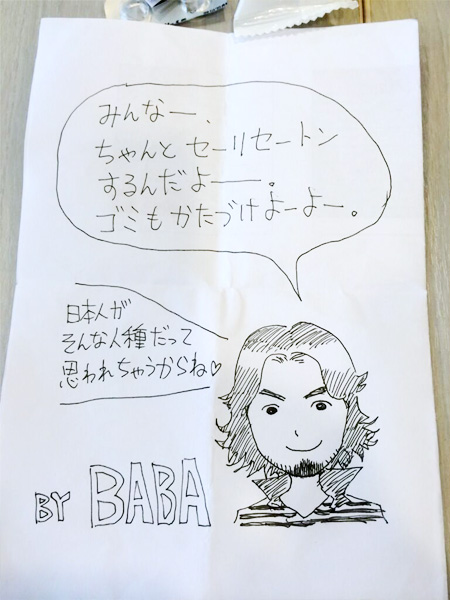 みんなー、
ちゃんと セーリセートン
するんだよー。
ゴミも かたづけよーよー。
日本人が
そんな人種だって
思われちゃうからね♡
BY BABA